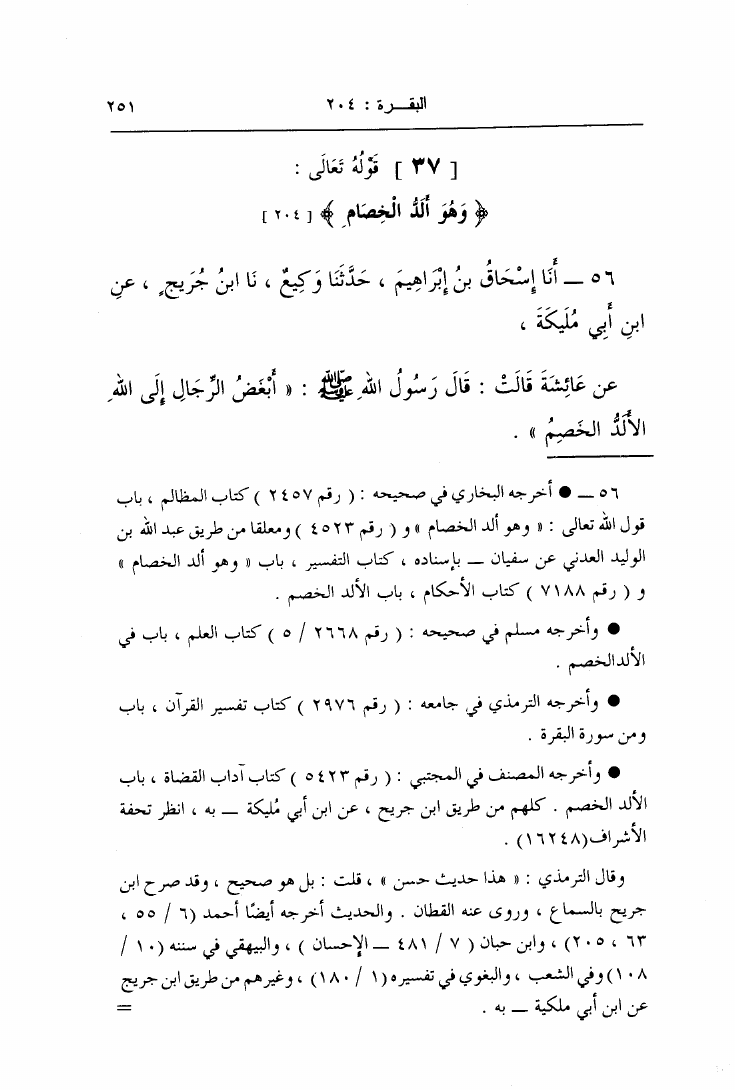 البقـــرة : ٢٠٤ ٢٥١
[ ٣٧ ] قَوْلُهُ تَعَالَى :
﴿ وَهُوَ أَلَدُّ الْخِصَامِ ﴾ [ ٢٠٤ ]
٥٦ ــ أَنَا إِسْحَاقُ بنُ إِبْرَاهِيمَ ، حَدَّثَنَا وَكِيعٌ ، نَا ابنُ جُرَيجٍ ، عَنِ
ابنِ أَبِي مُلَيكَةَ ،
عن عَائِشَةَ قَالَتْ : قَالَ رَسُولُ اللهِ ﷺ : « أَبْغَضُ الرِّجَالِ إِلَى اللهِ
الأَلَدُّ الخَصِمُ » .
٥٦ ــ ● أخرجه البخاري في صحيحه : ( رقم ٢٤٥٧ ) كتاب المظالم ، باب
قول الله تعالى : « وهو ألد الخصام » و ( رقم ٤٥٢٣ ) ومعلقا من طريق عبد الله بن
الوليد العدني عن سفيان ــ بإسناده ، كتاب التفسير ، باب « وهو ألد الخصام »
و ( رقم ٧١٨٨ ) كتاب الأحكام ، باب الألد الخصم .
● وأخرجه مسلم في صحيحه : ( رقم ٢٦٦٨ / ٥ ) كتاب العلم ، باب في
الألد الخصم .
● وأخرجه الترمذي في جامعه : ( رقم ٢٩٧٦ ) كتاب تفسير القرآن ، باب
ومن سورة البقرة .
● وأخرجه المصنف في المجتبي : ( رقم ٥٤٢٣ ) كتاب آداب القضاة ، باب
الألد الخصم . كلهم من طريق ابن جريح ، عن ابن أبي مُليكة ــ به ، انظر تحفة
الأشراف(١٦٢٤٨) .
وقال الترمذي : « هذا حديث حسن » ، قلت : بل هو صحيح ، وقد صرح ابن
جريح بالسماع ، وروى عنه القطان . والحديث أخرجه أيضًا أحمد (٦ / ٥٥ ،
٦٣ ، ٢٠٥) ، وابن حبان ( ٧ / ٤٨١ ــ الإحسان ) ، والبيهقي في سننه (١٠ /
١٠٨) وفي الشعب ، والبغوي في تفسيره (١ / ١٨٠) ، وغيرهم من طريق ابن جريج
عن ابن أبي ملكية ــ به . =